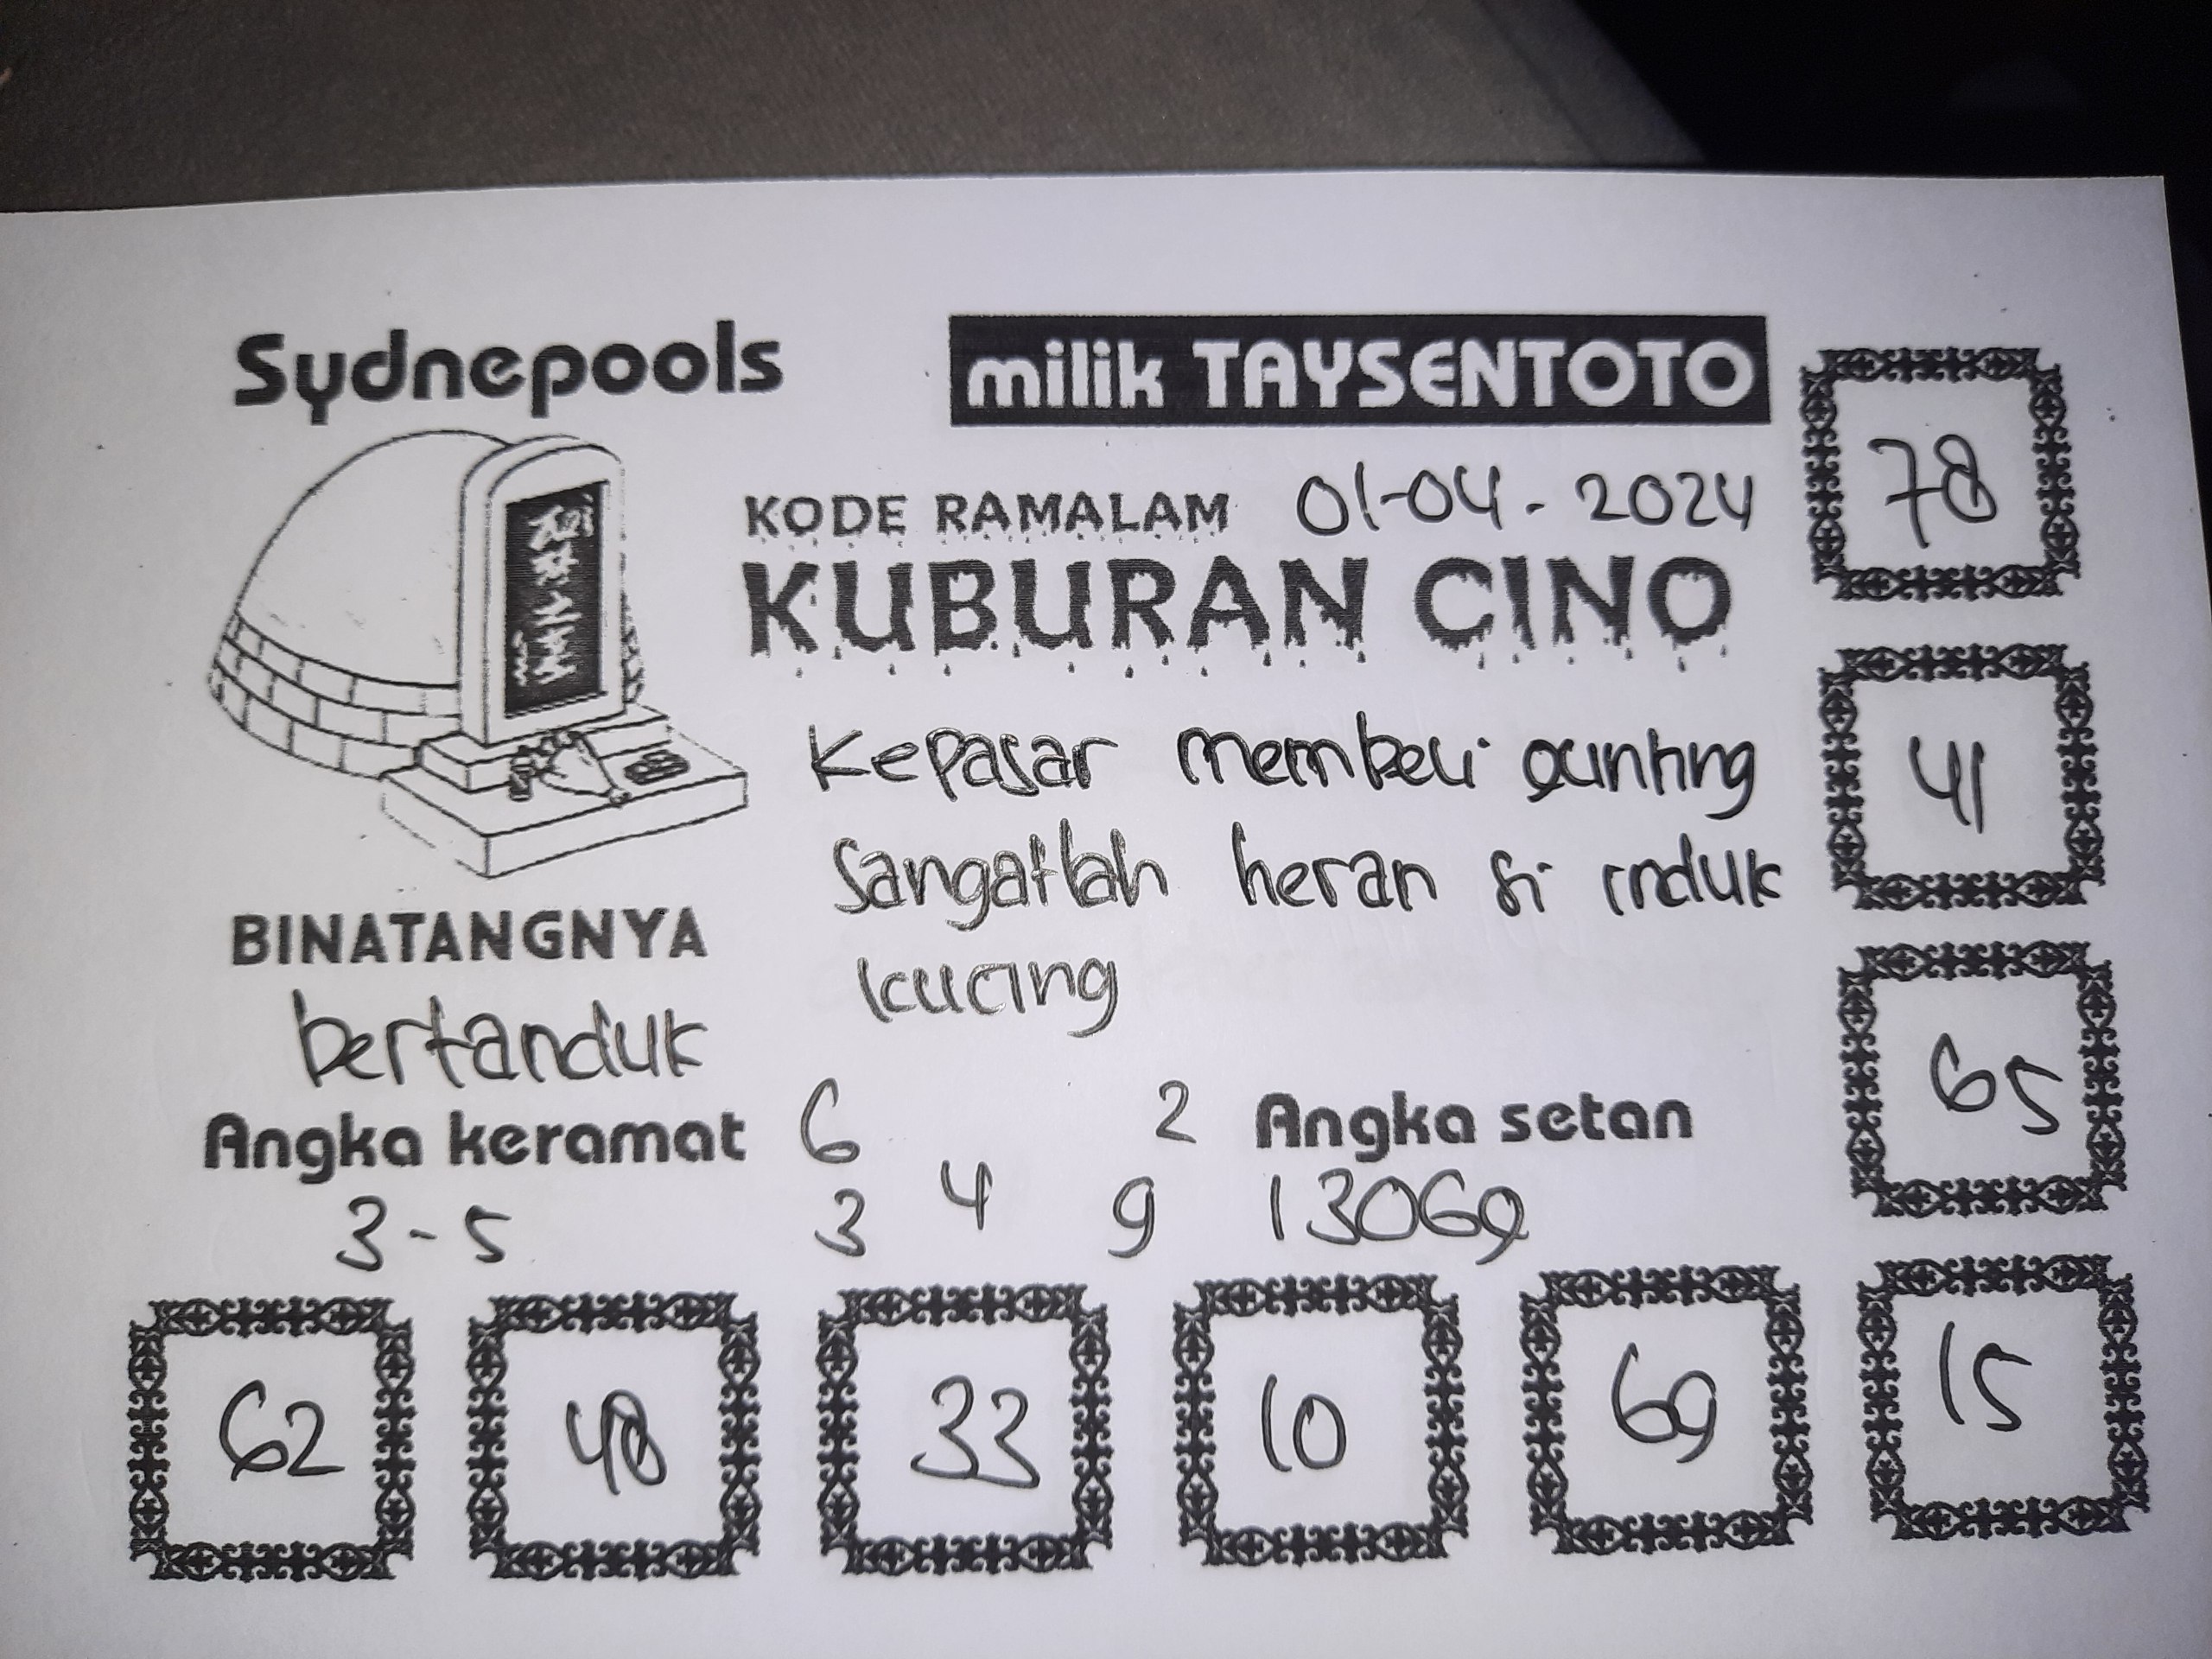 Sydnepools
milik TAYSENTOTO
78
KODE RAMALAM 01-04-2024
KUBURAN CINO
41
Kepasar membeli gunting
sangatlah heran si induk
kucing
BINATANGNYA
bertanduk
65
Angka keramat 6 2 Angka setan
3-5 3 4 9 13069
62 48 33 10 69 15